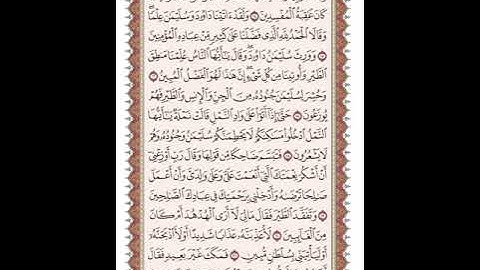 كَانَ عَٰقِبَةُ ٱلْمُفْسِدِينَ ۝ وَلَقَدْ ءَاتَيْنَا دَاوُۥدَ وَسُلَيْمَٰنَ عِلْمًا
وَقَالَا ٱلْحَمْدُ لِلَّهِ ٱلَّذِى فَضَّلَنَا عَلَىٰ كَثِيرٍ مِّنْ عِبَادِهِ ٱلْمُؤْمِنِينَ
۝ وَوَرِثَ سُلَيْمَٰنُ دَاوُۥدَ وَقَالَ يَٰٓأَيُّهَا ٱلنَّاسُ عُلِّمْنَا مَنطِقَ
ٱلطَّيْرِ وَأُوتِينَا مِن كُلِّ شَىْءٍ إِنَّ هَٰذَا لَهُوَ ٱلْفَضْلُ ٱلْمُبِينُ ۝
وَحُشِرَ لِسُلَيْمَٰنَ جُنُودُهُۥ مِنَ ٱلْجِنِّ وَٱلْإِنسِ وَٱلطَّيْرِ فَهُمْ
يُوزَعُونَ ۝ حَتَّىٰٓ إِذَآ أَتَوْا۟ عَلَىٰ وَادِ ٱلنَّمْلِ قَالَتْ نَمْلَةٌ يَٰٓأَيُّهَا
ٱلنَّمْلُ ٱدْخُلُوا۟ مَسَٰكِنَكُمْ لَا يَحْطِمَنَّكُمْ سُلَيْمَٰنُ وَجُنُودُهُۥ وَهُمْ
لَا يَشْعُرُونَ ۝ فَتَبَسَّمَ ضَاحِكًا مِّن قَوْلِهَا وَقَالَ رَبِّ أَوْزِعْنِىٓ
أَنْ أَشْكُرَ نِعْمَتَكَ ٱلَّتِىٓ أَنْعَمْتَ عَلَىَّ وَعَلَىٰ وَٰلِدَىَّ وَأَنْ أَعْمَلَ
صَٰلِحًا تَرْضَىٰهُ وَأَدْخِلْنِى بِرَحْمَتِكَ فِى عِبَادِكَ ٱلصَّٰلِحِينَ
۝ وَتَفَقَّدَ ٱلطَّيْرَ فَقَالَ مَالِىَ لَآ أَرَى ٱلْهُدْهُدَ أَمْ كَانَ
مِنَ ٱلْغَآئِبِينَ ۝ لَأُعَذِّبَنَّهُۥ عَذَابًا شَدِيدًا أَوْ لَأَا۟ذْبَحَنَّهُۥٓ
أَوْ لَيَأْتِيَنِّى بِسُلْطَٰنٍ مُّبِينٍ ۝ فَمَكَثَ غَيْرَ بَعِيدٍ فَقَالَ